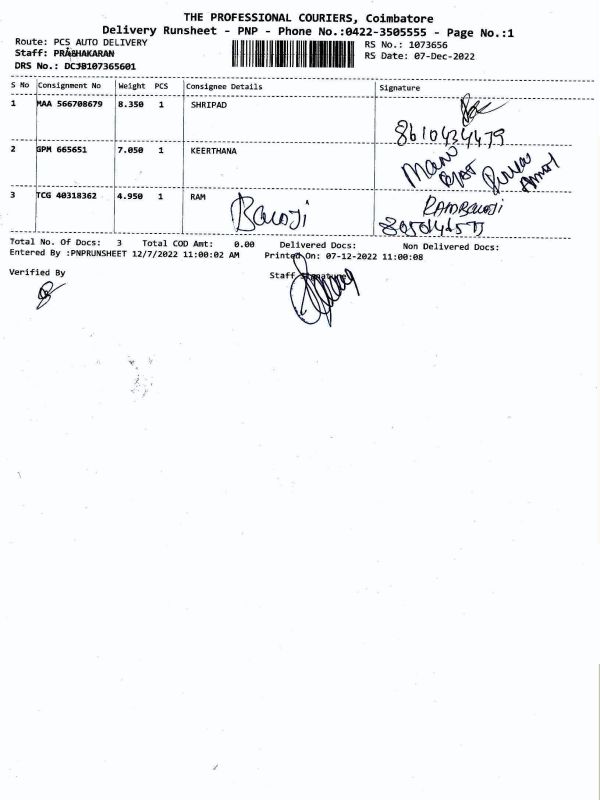 THE PROFESSIONAL COURIERS, Coimbatore
Delivery Runsheet - PNP - Phone No.:0422-3505555 - Page No.:1
Route: PCS AUTO DELIVERY
RS No.: 1073656
Staff: PRABHAKARAN
RS Date: 07-Dec-2022
DRS No.: DCJB107365601
S No Consignment No Weight PCS Consignee Details Signature
1 MAA 566708679 8.350 1 SHRIPAD
8610434479
2 GPM 665651 7.050 1 KEERTHANA
3 TCG 40318362 4.950 1 RAM
Balaji
RAMBALAJI
Total No. Of Docs: 3 Total COD Amt: 0.00 Delivered Docs: Non Delivered Docs:
Entered By :PNPRUNSHEET 12/7/2022 11:00:02 AM Printed On: 07-12-2022 11:00:08
Verified By Staff Signature